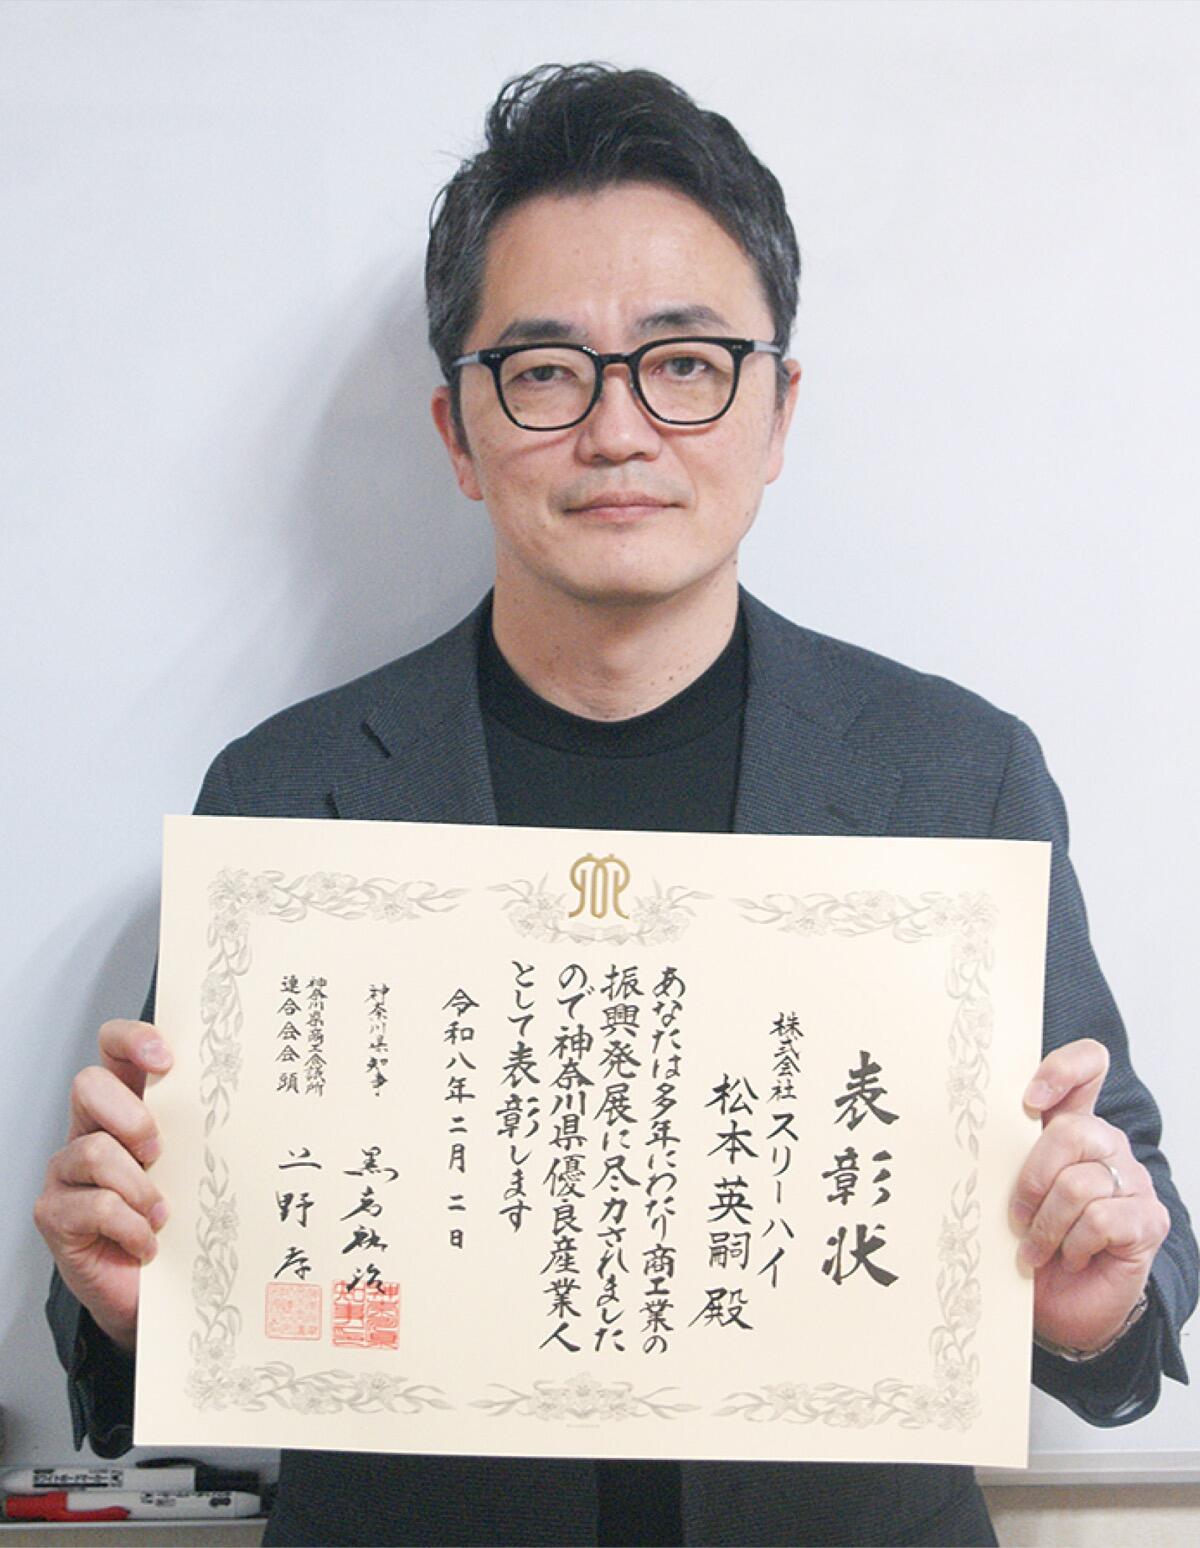 表彰状
株式会社スリーハイ
松本英嗣殿
あなたは多年にわたり商工業の
振興発展に尽力されました
ので神奈川県優良産業人
として表彰します
令和八年二月二日
神奈川県知事 黒岩祐治
神奈川県商工会議所
連合会会頭 上野孝
ホワイトボードマーカー